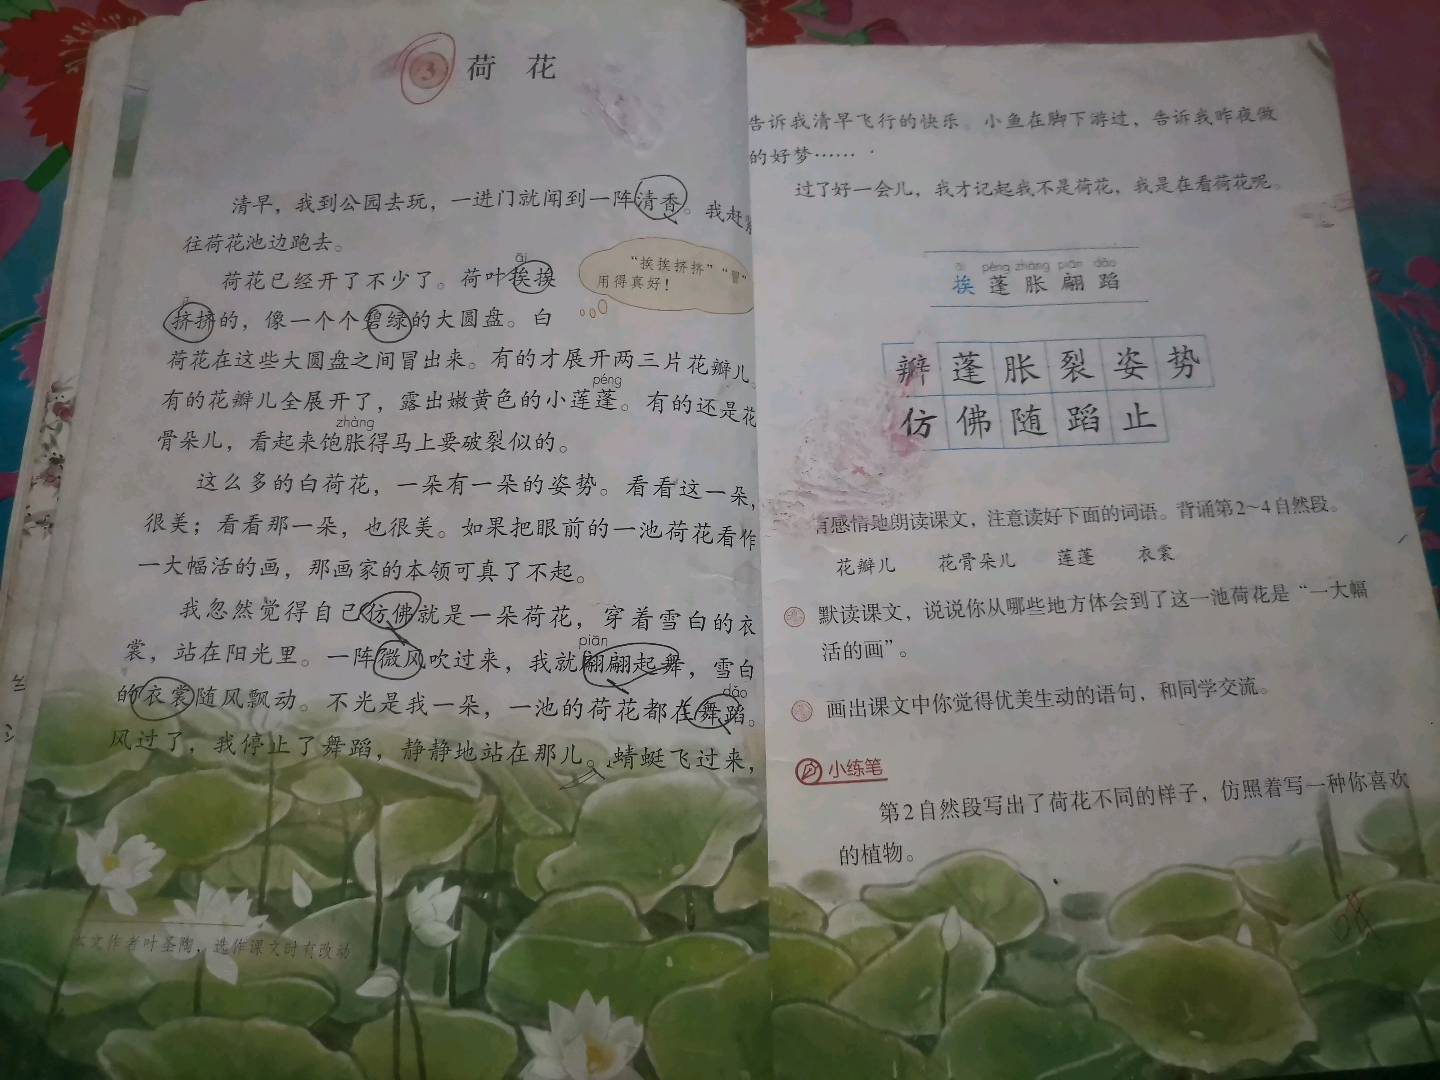 3 荷 花
清早，我到公园去玩，一进门就闻到一阵清香。我赶
往荷花池边跑去。
āi
荷花已经开了不少了。荷叶挨挨
挤挤的，像一个个碧绿的大圆盘。白
荷花在这些大圆盘之间冒出来。有的才展开两三片花瓣儿。
péng
有的花瓣儿全展开了，露出嫩黄色的小莲蓬。有的还是花
zhàng
骨朵儿，看起来饱胀得马上要破裂似的。
这么多的白荷花，一朵有一朵的姿势。看看这一朵，
很美；看看那一朵，也很美。如果把眼前的一池荷花看作
一大幅活的画，那画家的本领可真了不起。
我忽然觉得自己仿佛就是一朵荷花，穿着雪白的衣
piān
裳，站在阳光里。一阵微风吹过来，我就翩翩起舞，雪白
dǎo
的衣裳随风飘动。不光是我一朵，一池的荷花都在舞蹈。
风过了，我停止了舞蹈，静静地站在那儿。蜻蜓飞过来，
“挨挨挤挤”“冒”
用得真好！
本文作者叶圣陶，选作课文时有改动。
告诉我清早飞行的快乐。小鱼在脚下游过，告诉我昨夜做
的好梦……
过了好一会儿，我才记起我不是荷花，我是在看荷花呢。
āi péng zhàng piān dǎo
挨 蓬 胀 翩 蹈
瓣 蓬 胀 裂 姿 势
仿 佛 随 蹈 止
有感情地朗读课文，注意读好下面的词语。背诵第2~4自然段。
花瓣儿 花骨朵儿 莲蓬 衣裳
默读课文，说说你从哪些地方体会到了这一池荷花是“一大幅
活的画”。
画出课文中你觉得优美生动的语句，和同学交流。
小练笔
第2自然段写出了荷花不同的样子，仿照着写一种你喜欢
的植物。